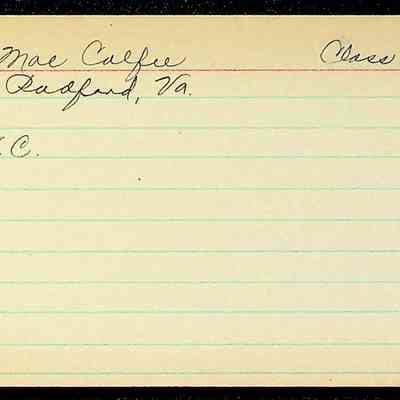 Mae Calfee Class
Radford, Va.
. C.